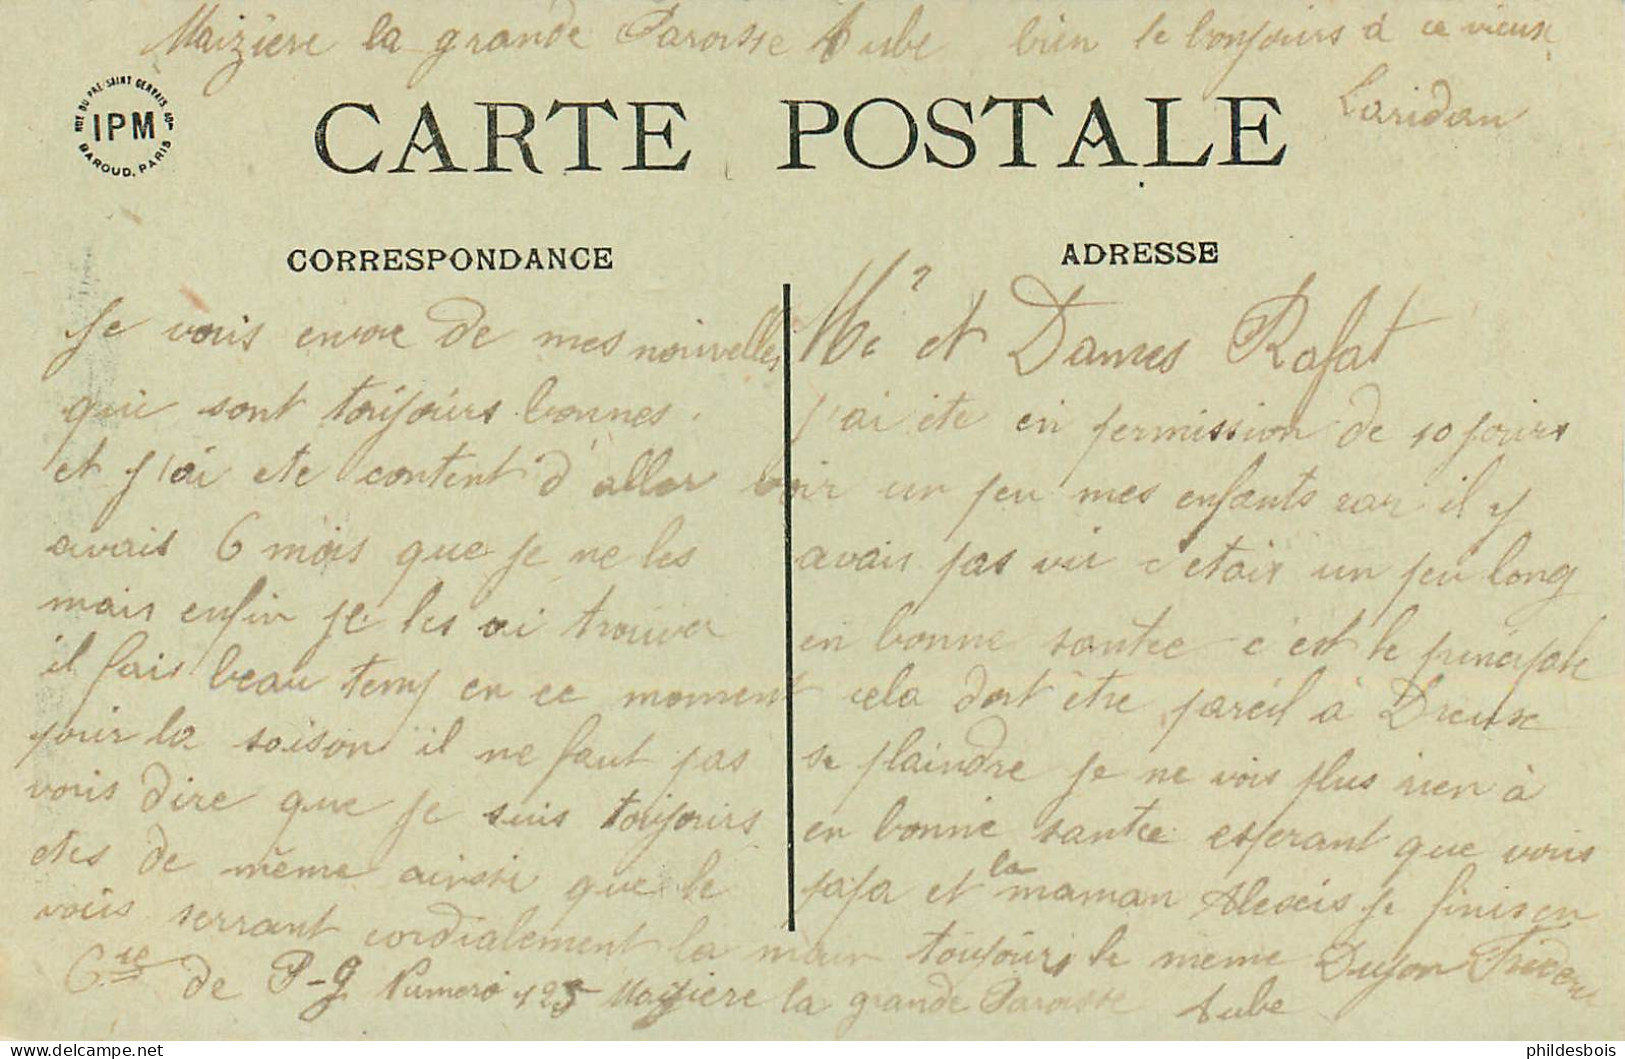 Maizière la grande Paroisse Aube bien le bonjours à ce vieux
Laridan
RUE DU PRÉ-SAINT GERVAIS
IPM
BAROUD. PARIS
CARTE POSTALE
CORRESPONDANCE
ADRESSE
Mr et Dames Rafat
Je vous envoie de mes nouvelles
qui sont toujours bonnes. j'ai ete en permission de 10 jours
et j'ai ete content d'aller voir un peu mes enfants car il y
avais 6 mois que je ne les avais pas vu c'etais un peu long
mais enfin je les ai trouver en bonne santee c'est le principale
il fais beau temp en ce moment cela doit être pareil à Dreux
pour la saison il ne faut pas se plaindre je ne vois plus rien à
vous dire que je suis toujours en bonne santee esperant que vous
etes de même ainsi que le papa et la maman Alexis je finis en
vous serrant cordialement la main toujours le même Dujon
Cie de P-G Numero 125 Maziere la grande Paroisse Aube
phildesbois